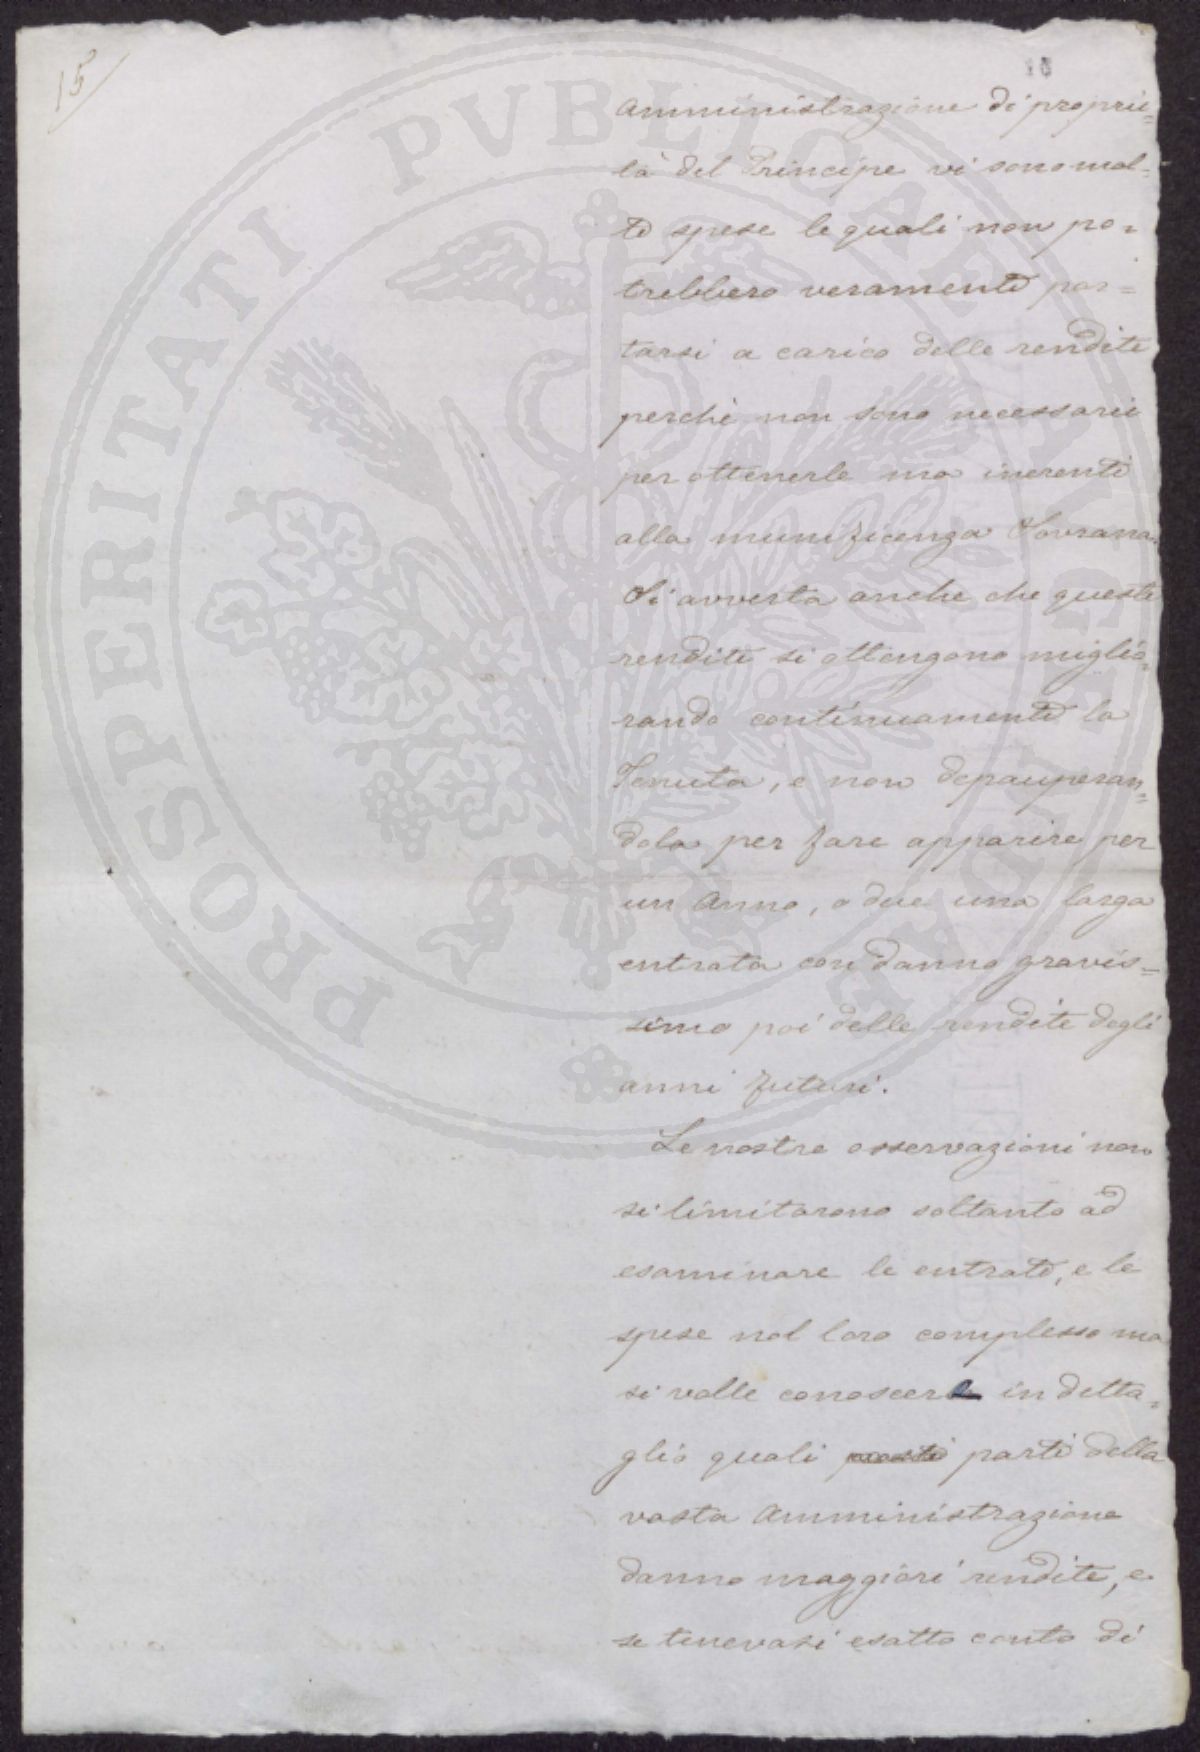 15
16
Amministrazione di proprie=
tà del Principe vi sono mol=
te spese le quali non po=
trebbero veramente por=
tarsi a carico delle rendite
perchè non sono necessarie
per ottenerle ma inerenti
alla munificenza Sovrana.
Si avverta anche che queste
rendite si ottengono miglio=
rando continuamente la
Tenuta, e non depauperan=
dola per fare apparire per
un Anno, o due una larga
entrata con danno gravis=
simo poi delle rendite degli
anni futuri.
Le nostre osservazioni non
si limitarono soltanto ad
esaminare le entrate, e le
spese nel loro complesso ma
si volle conoscere in detta=
glio quali parti della
vasta Amministrazione
danno maggiori rendite, e
se tenevasi esatto conto di
PROSPERITATI PVBLICAE AVGENDAE